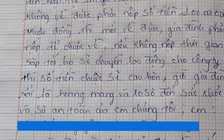 không về được phải nộp số tiền
muốn đóng thì mới về được, gia đình phải
nộp để chuộc về, nếu không nộp thời gian
sắp tới họ sẽ chuyển lao động cho công ty
thì số tiền chuộc sẽ cao hơn, giờ gia đình
tôi là hoang mang và lo sợ đến sức khỏe
và sự an toàn của em chúng tôi, em